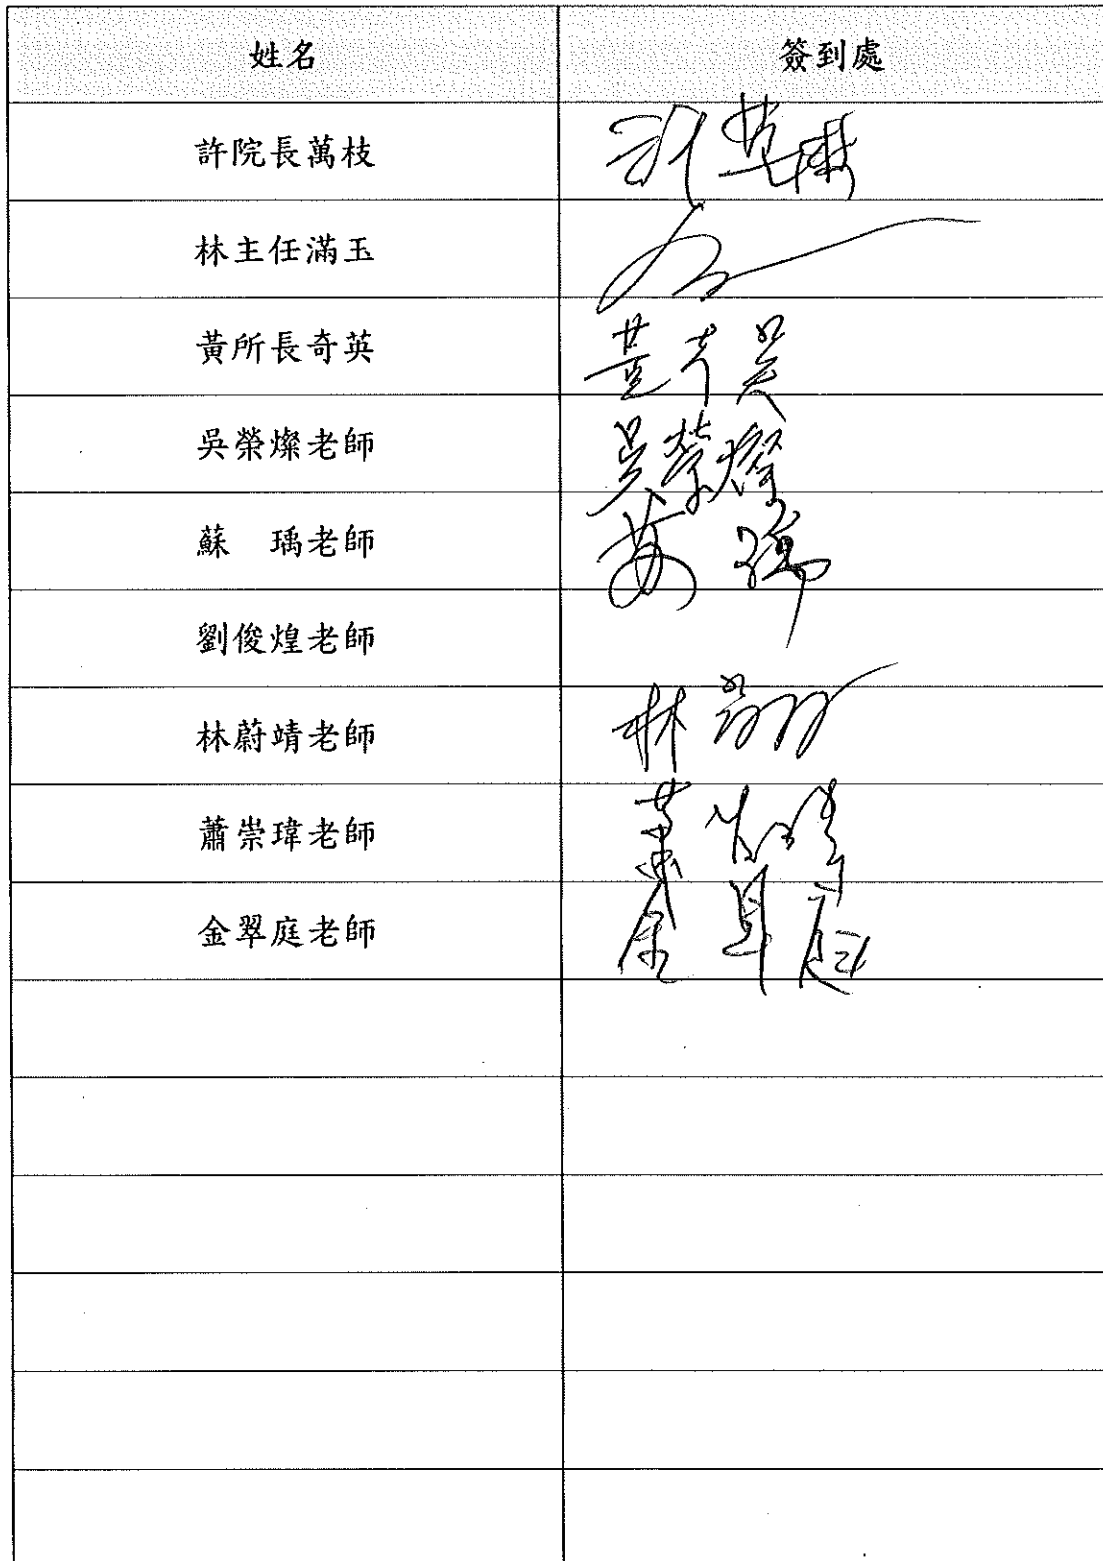 姓名 簽到處
許院長萬枝 許萬枝
林主任滿玉
黃所長奇英 黃奇英
吳榮燦老師 吳榮燦
蘇 瑀老師 蘇瑀
劉俊煌老師
林蔚靖老師 林
蕭崇瑋老師 蕭
金翠庭老師 金翠庭